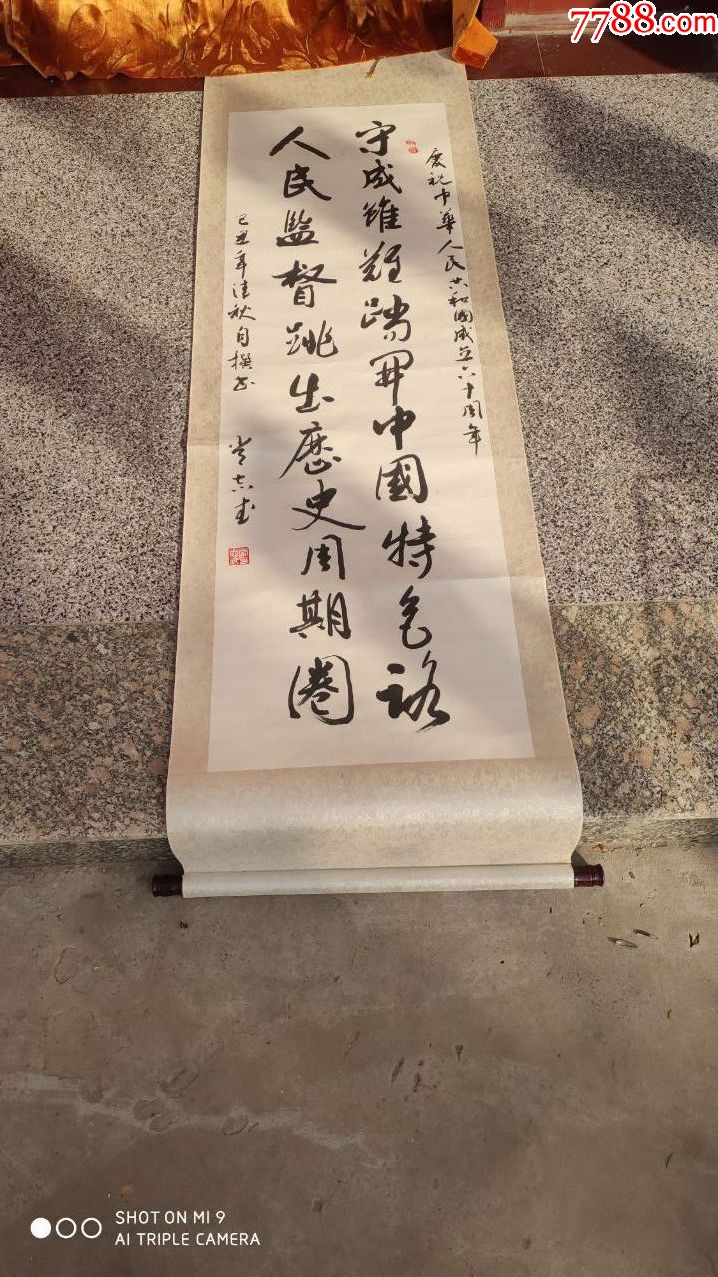 7788.com
慶祝中華人民共和國成立六十周年
守成雖難踏開中國特色路
人民監督跳出歷史周期圈
己丑年佳秋自撰書
SHOT ON MI 9
AI TRIPLE CAMERA